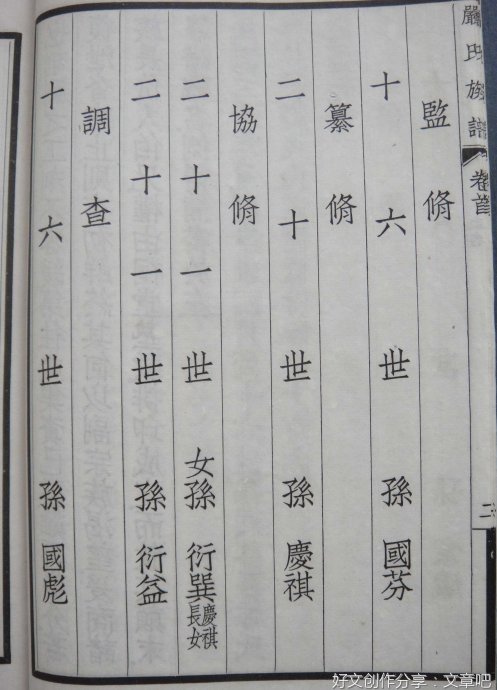 嚴氏族譜 卷首 二
監脩
十六世孫國芬
纂脩
二十世孫慶祺
協脩
二十一世女孫衍巽慶祺長女
二十一世孫衍益
調查
十六世孫國彪
好文创作分享：文章吧